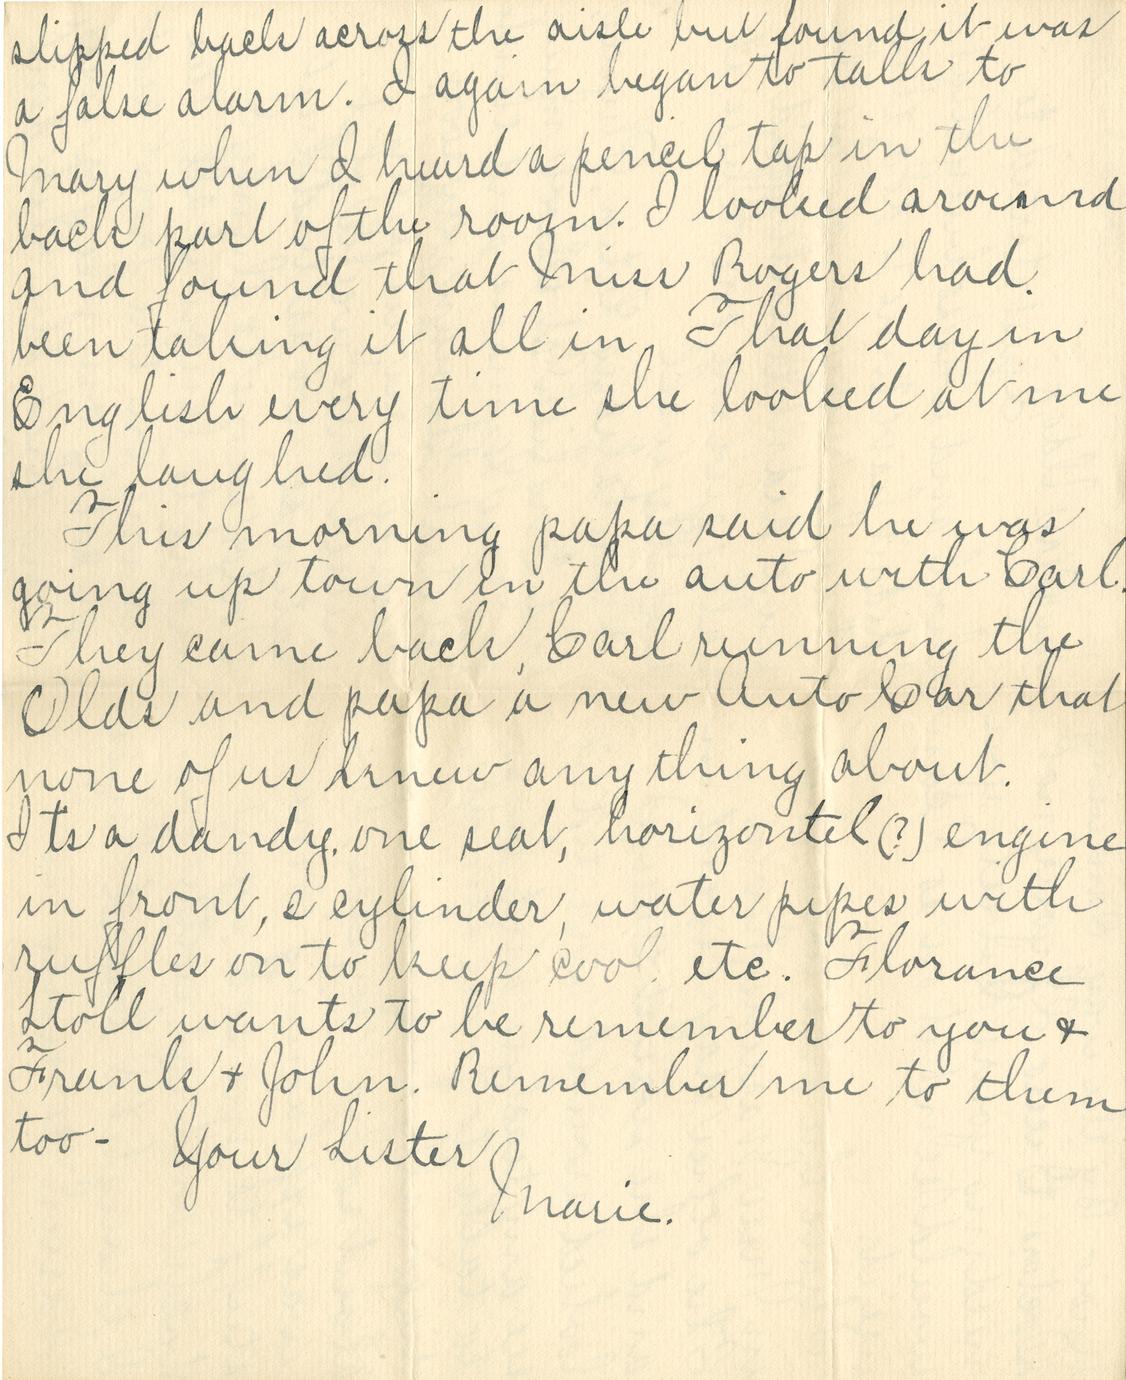 slipped back across the aisle but found it was
a false alarm. I again began to talk to
Mary when I heard a pencil tap in the
back part of the room. I looked around
and found that Miss Rogers had
been taking it all in. That day in
English every time she looked at me
she laughed.
This morning papa said he was
going up town in the auto with Carl.
They came back, Carl running the
Olds and papa a new Auto Car that
none of us knew anything about.
Its a dandy, one seat, horizontel (?) engine
in front, 2 cylinder, water pipes with
ruffles on to keep cool. etc. Florance
Stoll wants to be remember to you &
Frank & John. Remember me to them
too- Your Sister
Marie.